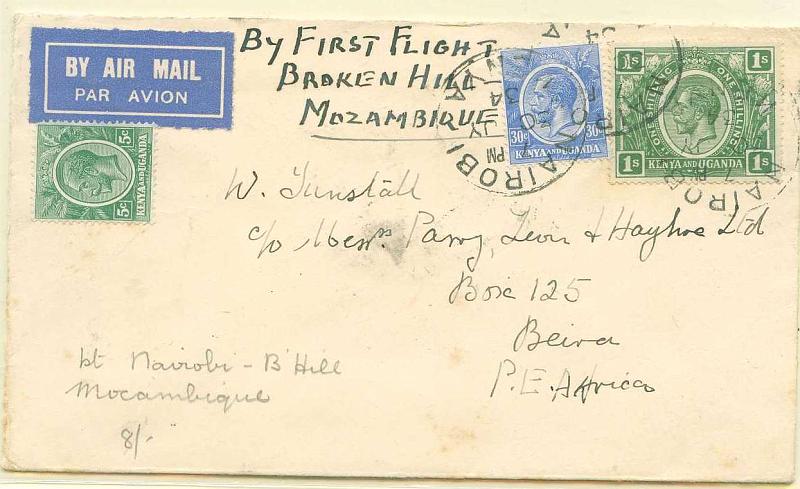 BY AIR MAIL
PAR AVION
By First Flight
Broken Hill
Mozambique
5c 5c
KENYA AND UGANDA
30c 30c
KENYA AND UGANDA
1s 1s
ONE SHILLING ONE SHILLING
1s KENYA AND UGANDA 1s
NAIROBI
7 PM
30 JY
34
NAIROBI
W. Tunstall
c/o Messrs Parry, Leon & Hayhoe Ltd
Box 125
Beira
P.E. Africa
1st Nairobi - B'Hill
Mocambique
8/-